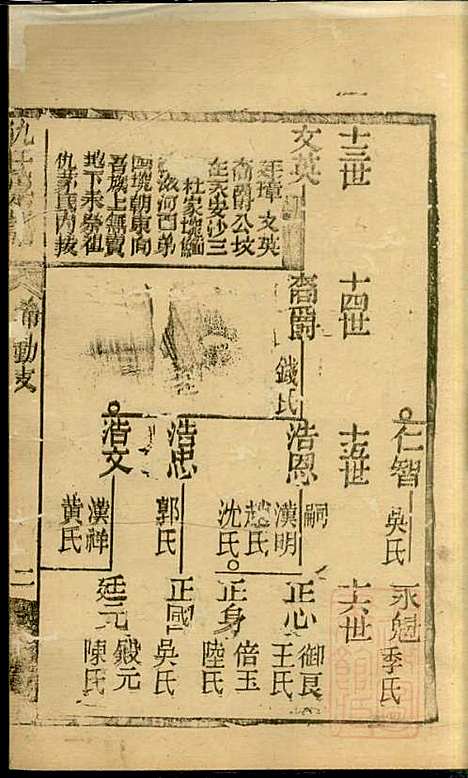 仁智
吳氏
永魁
季氏
十三世
十四世
十五世
十六世
文英
廷璋文英
裔爵公坟
在天安沙三
杜家塊缅
依河西弟
四塊朝東向
吾族上無賣
地下未祭祖
仇茅氏内抜
裔爵
錢氏
浩恩
嗣漢明
趙氏
沈氏
正心
御良
王氏
正身
倍玉
陸氏
浩忠
郭氏
正國
吳氏
浩文
漢祥
黃氏
廷元
殿元
陳氏
動支
二